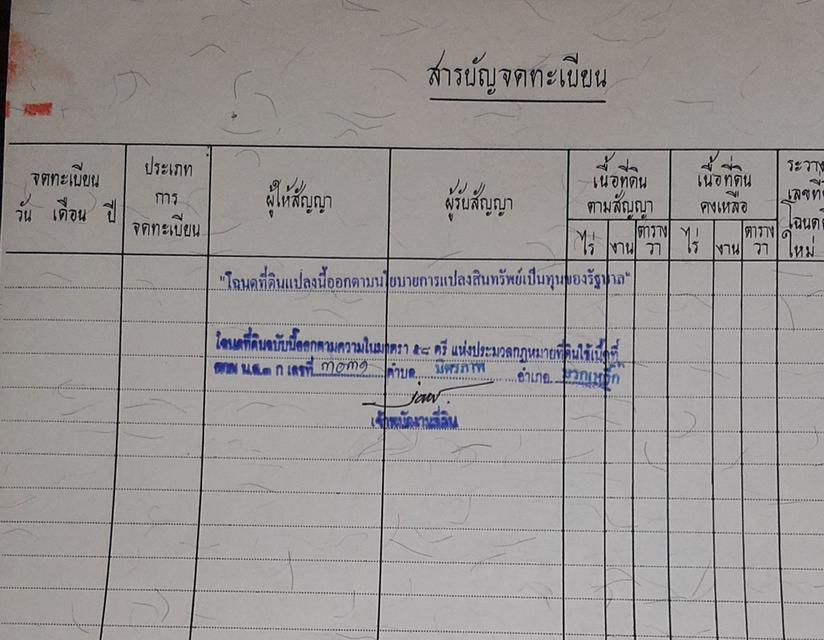 สารบัญจดทะเบียน
จดทะเบียน
วัน เดือน ปี
ประเภท
การ
จดทะเบียน
ผู้ให้สัญญา
ผู้รับสัญญา
เนื้อที่ดิน
ตามสัญญา
ไร่ งาน ตาราง
วา
เนื้อที่ดิน
คงเหลือ
ไร่ งาน ตาราง
วา
ระวาง
เลขที่
โฉนด
ใหม่
"โฉนดที่ดินแปลงนี้ออกตามนโยบายการแปลงสินทรัพย์เป็นทุนของรัฐบาล"
โฉนดที่ดินฉบับนี้ออกตามความในมาตรา ๕๘ ตรี แห่งประมวลกฎหมายที่ดินใช้เนื้อที่
น.ส.๓ ก เลขที่ ๓๐๓๑ ตำบล มิตรภาพ อำเภอ มวกเหล็ก
เจ้าพนักงานที่ดิน